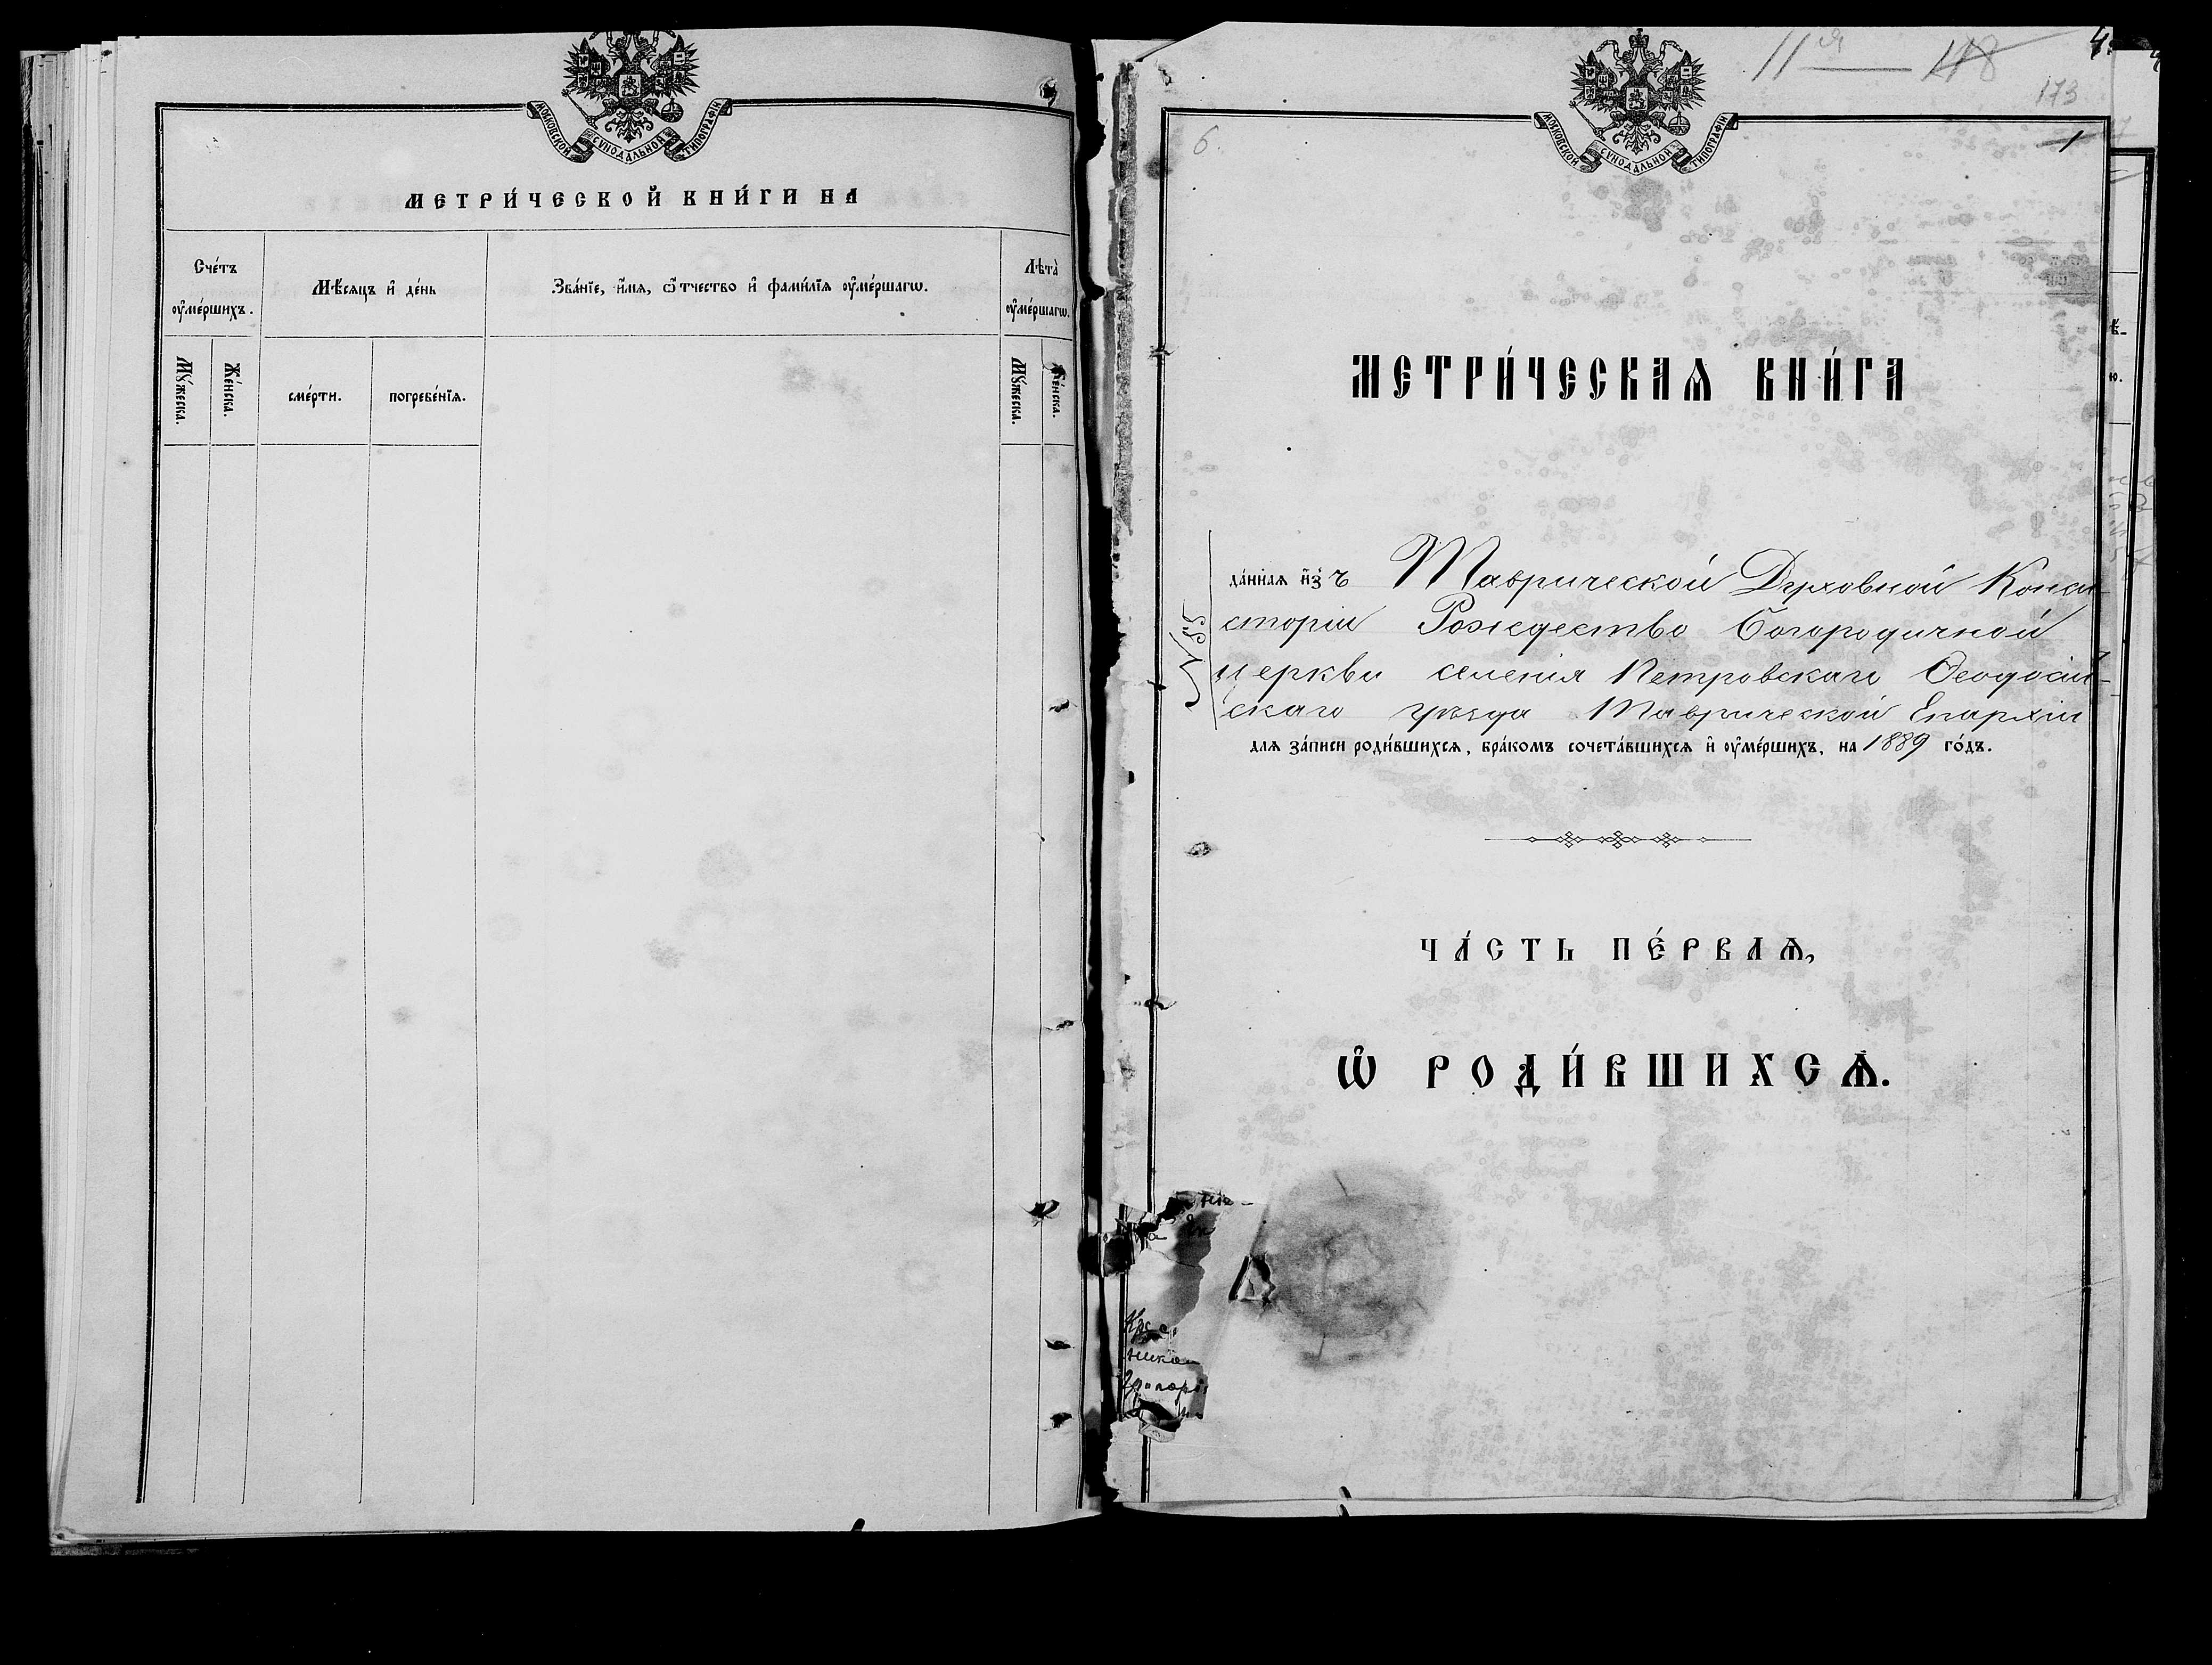 МОСКОВСКОЙ СѴНОДАЛЬНОЙ ТИПОГРАФІИ
МЕТРИ́ЧЕСКОЙ КНИ́ГИ НА
Сче́тъ ᲂу҆ме́ршихъ.
Мѣ́сяцъ и҆ де́нь
Зва́нїе, и҆́мѧ, ѻ҆́тчество и҆ фамѝлїѧ ᲂу҆ме́ршагѡ.
Лѣта̀ ᲂу҆ме́ршагѡ.
Мꙋ́жеска.
Же́нска.
сме́рти.
погребе́нїѧ.
Мꙋ́жеска.
Же́нска.
11я 48
173
МОСКОВСКОЙ СѴНОДАЛЬНОЙ ТИПОГРАФІИ
6.
1
МЕТРИ́ЧЕСКАѦ КНИ́ГА
№ 85
да́ннаѧ и҆зъ Таврической Духовной Конси-
сторіи Рождество Богородичной
церкви селенія Петровскаго Ѳеодосій-
скаго уѣзда Таврической Епархіи
длѧ за́писи роди́вшихсѧ, бра́комъ сочета́вшихсѧ и҆ ᲂу҆ме́ршихъ, на 1889 го́дъ.
ЧА́СТЬ ПЕ́РВАѦ,
Ѡ҆ РОДИ́ВШИХСѦ.